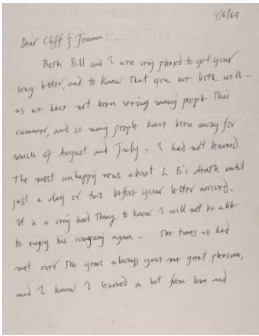 7/6/69
Dear Cliff & Joanna
Both Bill and I are very pleased to get your
long letter, and to know that you are both well —
as we have not been seeing many people this
summer, and so many people have been away for
much of August and July, I had not learned
the most unhappy news about L. B's death until
just a day or two before your letter arrived.
It is a very sad thing to know I will not be able
to enjoy his company again — the times we had
met over the years always gave me great pleasure,
and I know I learned a lot from him and